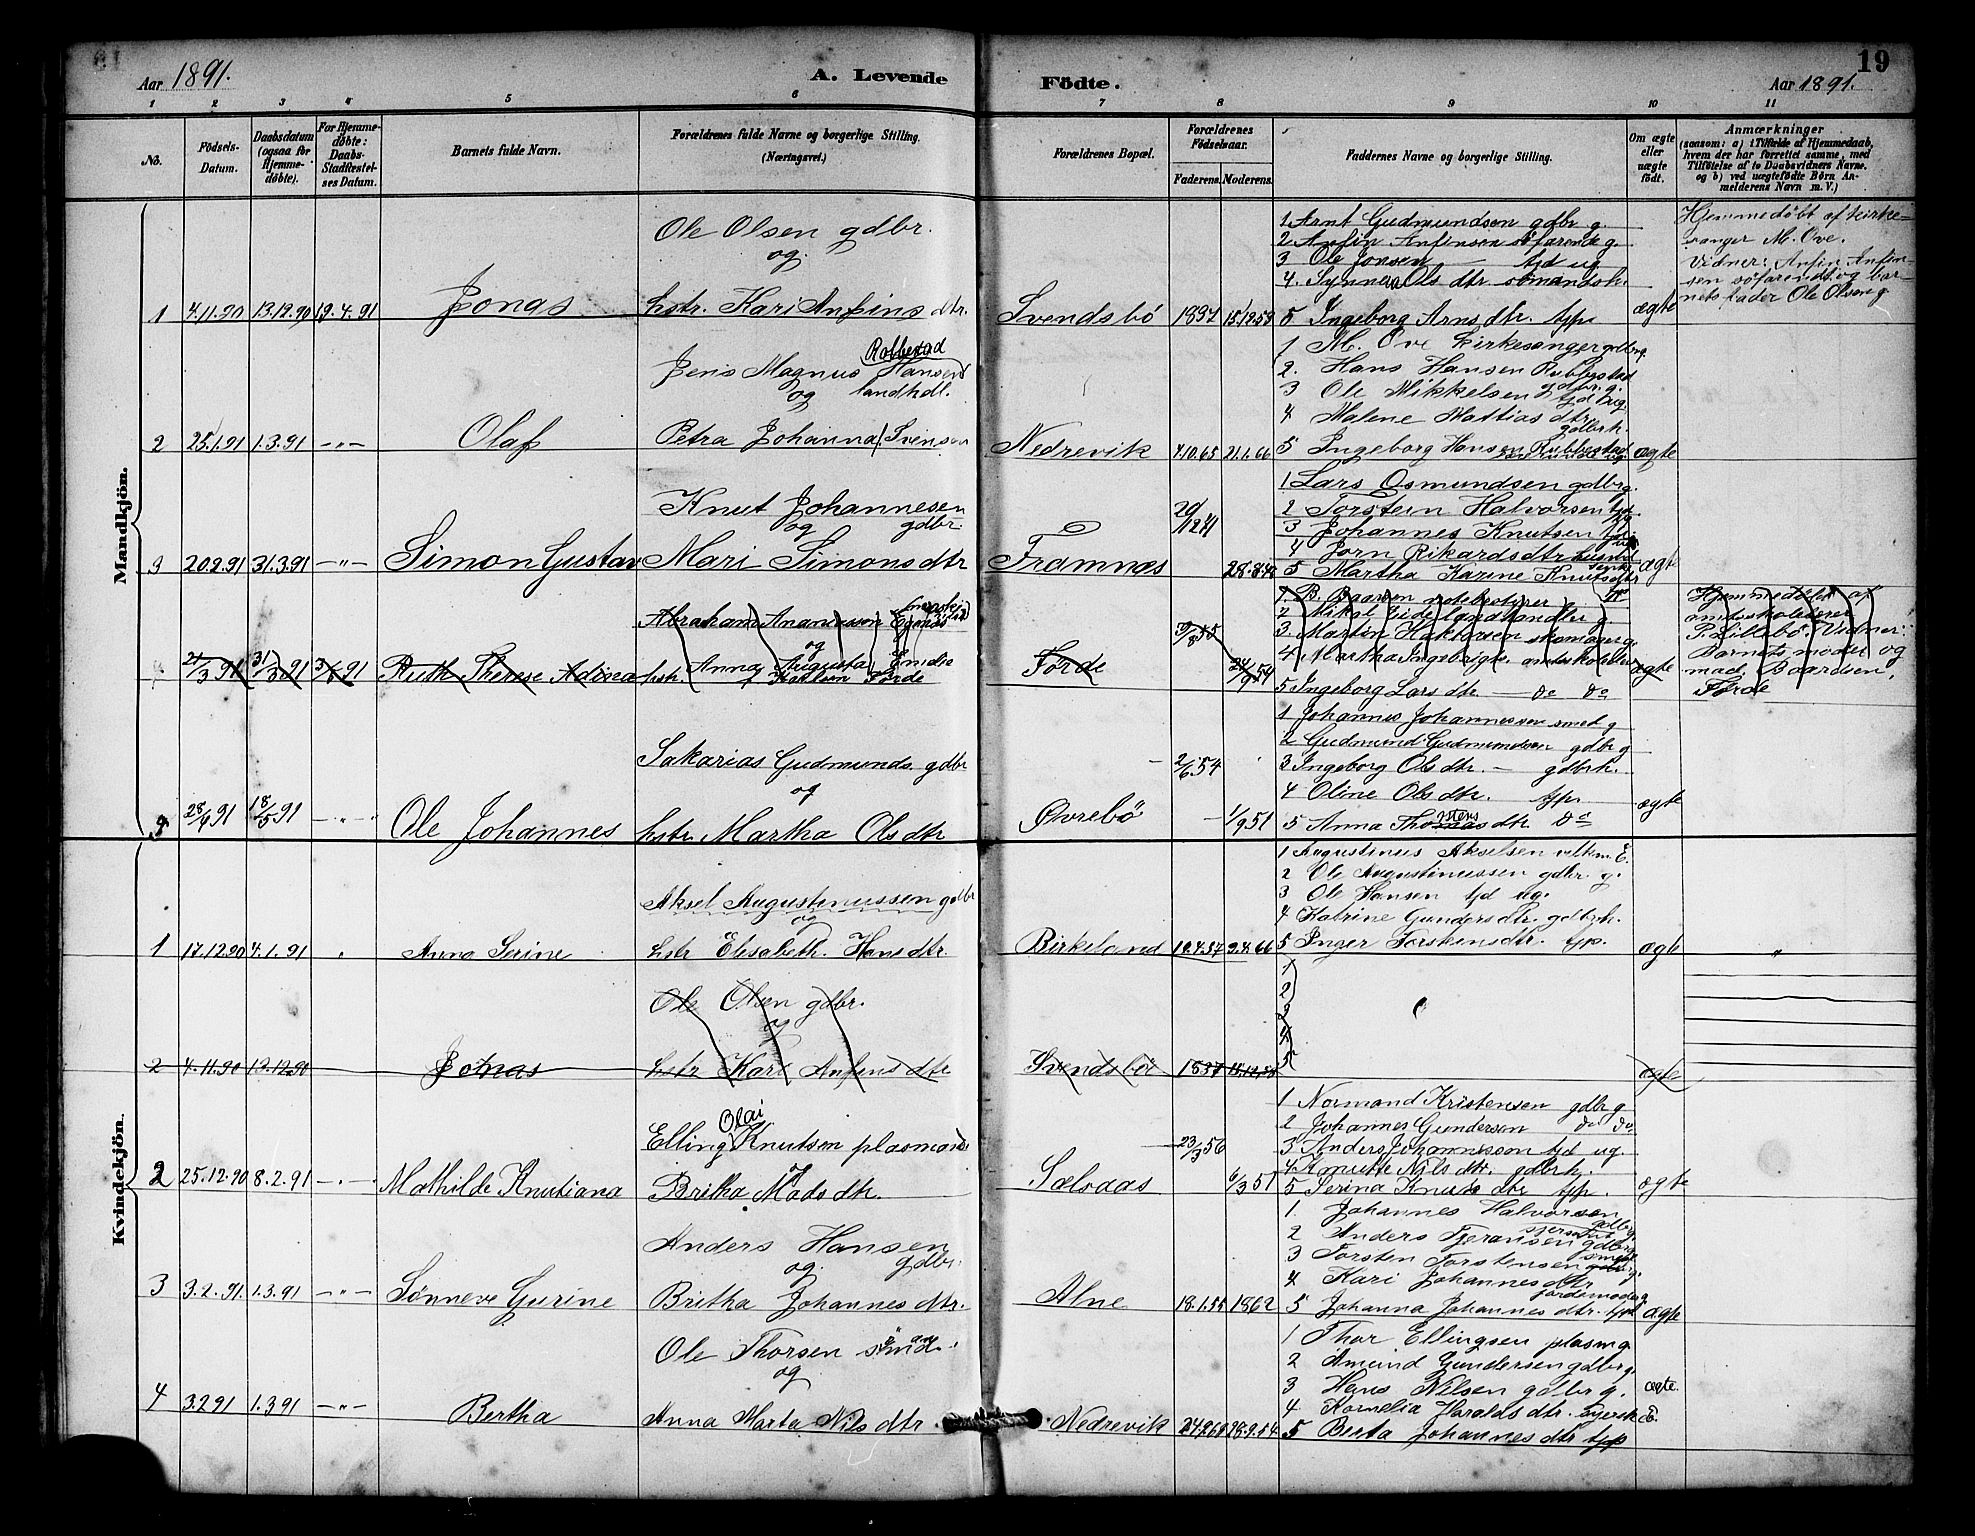 19
Aar 1891.
A. Levende
Födte.
Aar 1891.
1
2
3
4
5
6
7
8
9
10
11
No.
Födsels-
Datum.
Daabsdatum
(ogsaa for
Hjemme-
døbte).
For Hjemme-
døbte:
Daabs-
Stadfæstel-
ses Datum.
Barnets fulde Navn.
Forældrenes fulde Navne og borgerlige Stilling.
(Næringsvei.)
Forældrenes Bopæl.
Forældrenes
Födselsaar.
Faderens.
Moderens.
Faddernes Navne og borgerlige Stilling.
Om ægte
eller
uægte
født.
Anmærkninger
(saasom: a) i Tilfælde af Hjemmedaab,
hvem der har forrettet samme, med
Tilføielse af to Daabsvidners Navne,
og b) ved uægtefødte Börn An-
melderens Navn m. V.)
Mandkjön.
Ole Olsen gdbr.
og
1 4.11.90 13.12.90 19.4.91 Jonas hstr. Kari Anfins dtr.
Svendsbö 1837 15.12.58
1 Arnt Gudmundsen gdbr g.
2 Anfin Anfinsen söfarende g.
3 Ole Jonsen — tjd ug
4. Synna Ols dtr sömandsk.
5 Ingeborg Arns dtr. tjp
ægte
Hjemmedöbt af kirke-
sanger M. Ove.
Vidner: Anfin Anfin-
sen söfarende og bar-
nets fader Ole Olsen g.
Rolbestad
Jens Magnus Hansen
og landhdl.
2 25.1.91 1.3.91 — " — Olaf Petra Johanna Svensen
Nedrevik 7.10.65 21.1.66
1 M. Ove kirkesanger gdbr g.
2. Hans Hansen Rubbestad
gdbr. g.
3 Ole Mikkelsen tjd ug
4 Malene Mattias dtr
gdbrk.
5 Ingeborg Hansen Rubbestad
ægte
Knut Johannesen
og gdbr.
3 20.2.91 31.3.91 — " — Simon Gustav Mari Simons dtr
Framnæs 20/12 41 28.8.48
1 Lars Osmundsen gdbr g.
2 Torstein Halvorsen tjd
3 Johannes Knutsen
4 Jorn Rikards dtr
5 Martha Karine Knuts dtr
ægte
Abraham Ananiassen
og
21/3 91 31/3 91 3/ 91 Ruth Therese Adina hstr. Anna Augusta
Förde
Förde 9/8 55 24/9 54
1. B. Baarsen
2 Mikal Eide landhandler g.
3. Martin Haktorsen skomager g.
4. Martha Ingebrigte
5 Ingeborg Lars dtr. — do do
ægte
Hjemmedöbt af
amtsskolelærer
P. Lillebö. Vidner:
Barnets moder og
mad. Baardsen,
Förde
Sakarias Gudmunds. gdbr
og
28/4 91 18/5 91 — " — Ole Johannes hstr Martha Ols dtr
Øvrebö 2/6 54 1/9 51
1 Johannes Johannessen smed g
2 Gudmund Gudmundsen gdbr g
3 Ingeborg Ols dtr. — gdbrk.
4 Oline Ols dtr. tjp.
5 Anna Thomas dtr. do
ægte
Kvindekjön.
Aksel Augustinussen gdbr
og
1 17.12.90 4.1.91 " Anna Serine hstr Elisabeth. Hans dtr.
Birkeland 12.4.57 9.4.66
1 Augustinus Akselsen
2 Ole Augustinussen gdbr. g.
3 Ole Hansen tjd ug.
4 Katrine Gunders dtr. gdbrk.
5 Inger Torstens dtr. tjp.
ægte "
Ole Olsen gdbr.
og
2 4.11.90 13.12.90 Jonas hstr Kari Anfins dtr
Svendsbö 1837 15.12.58
1
2
3
4
5
ægte
Olai
Elling Knutsen plasmand
og
2 25.12.90 8.2.91 — " — Mathilde Knutiana Britha Mads dtr.
Sælsaas 23/3 56 6/3 51
1 Normand Kristensen gdbr g
2 Johannes Gundersen do do
3 Anders Johannessen tjd ug.
4 Amutte Nils dtr. gdbrk.
5 Serina Knuts dtr tjp.
ægte
Anders Hansen
og. gdbr.
3 3.2.91. 1.3.91 — " — Sönneve Gurine Britha Johannes dtr.
Alne 18.1.55 1862
1. Johannes Halvorsen
gdbr g.
2 Anders Tjeransen gdbr g.
3 Torsten Torstensen
4 Kari Johannes dtr
jordemoder g
5 Johanna Johannes dtr. tjp
ægte
Ole Thorsen sömand.
og
4 3.2.91 1.3.91 — " — Bertha Anna Marta Nils dtr.
Nedrevik 28.9.54
1 Thor Ellingsen plasm g.
2 Amund Gundersen gdbr g.
3 Hans Nilsen gdbr g.
4 Kornelia Haralds dtr.
5 Berta Johannes dtr tjp
ægte.